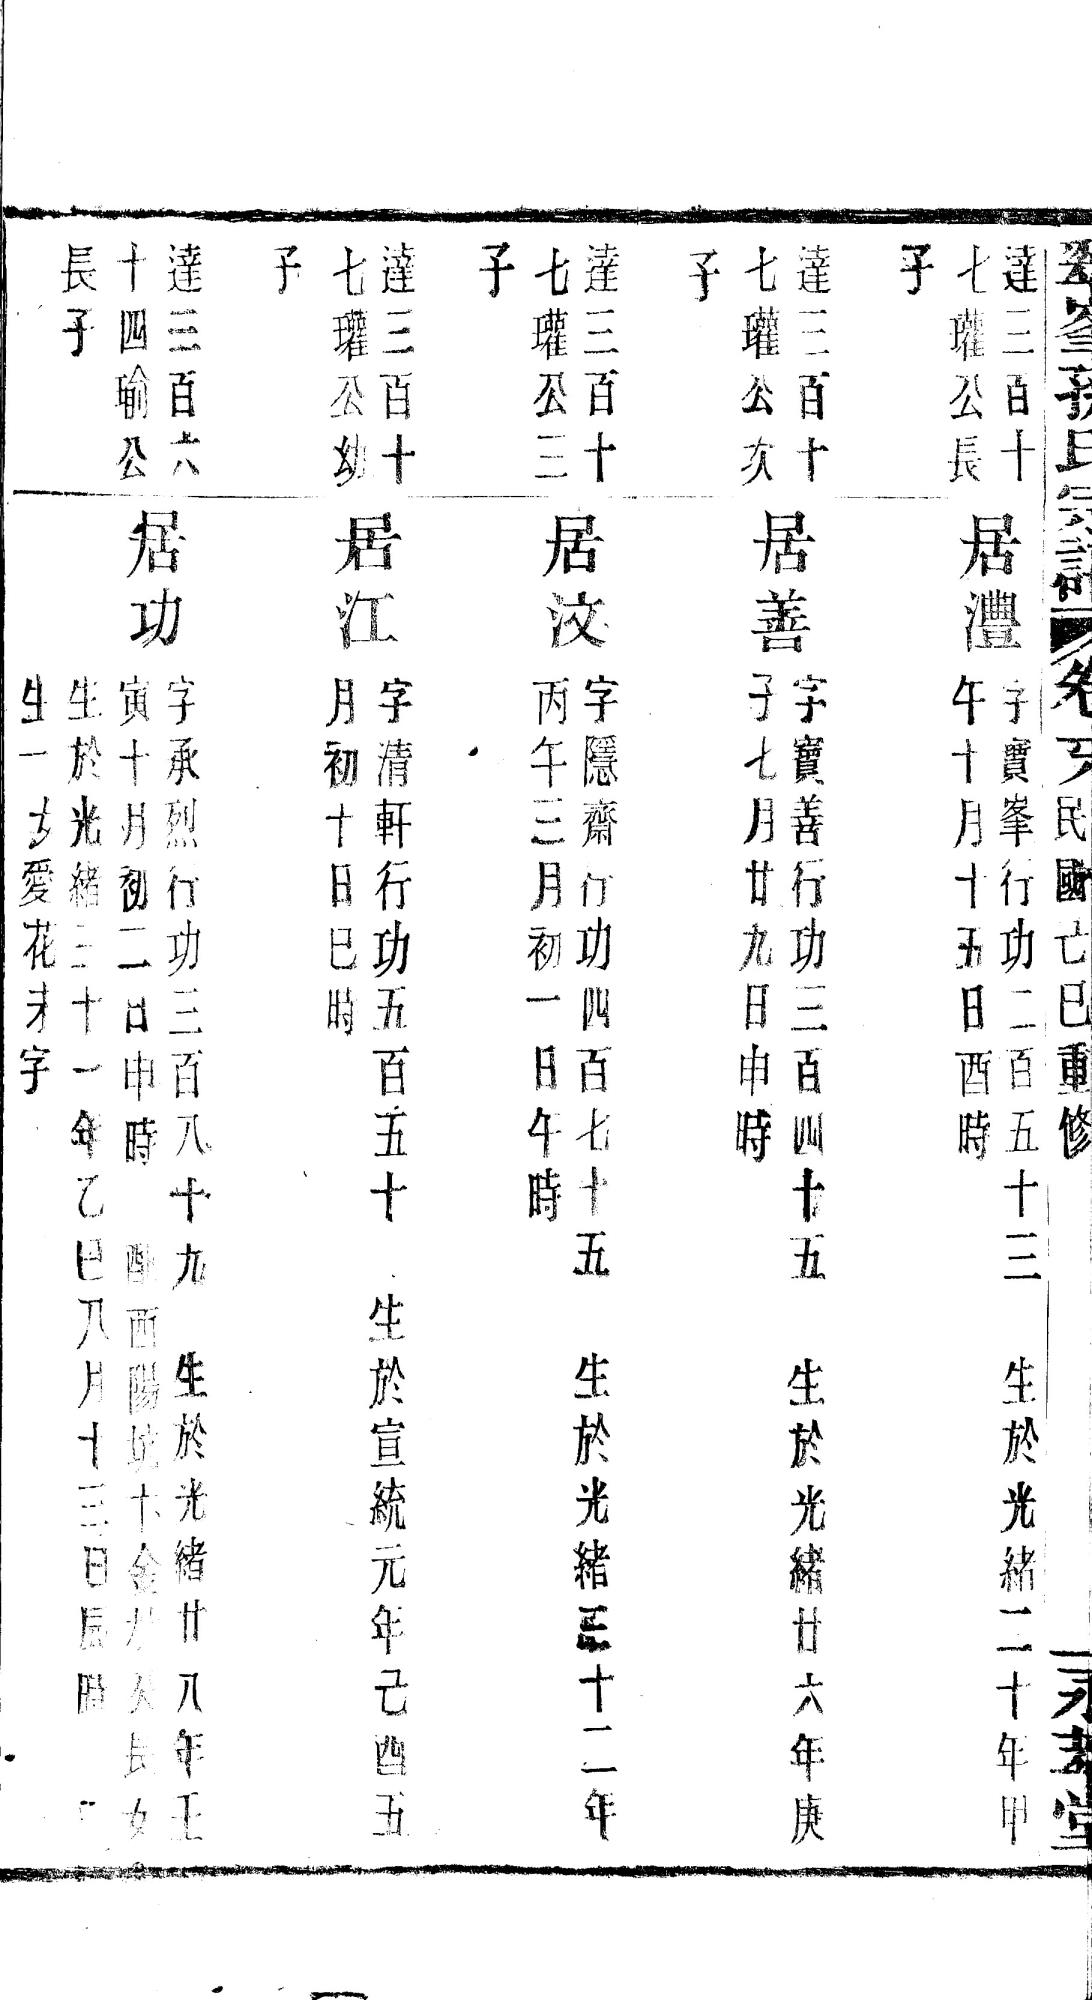 峯孫氏宗譜 卷 民國己巳重修 永 堂
達三百十
七瓘公長
子
居灃
字寶峯行功二百五十三 生於光緒二十年甲
午十月十五日酉時
達三百十
七瓘公次
子
居善
字寶善行功三百四十五 生於光緒廿六年庚
子七月廿九日申時
達三百十
七瓘公三
子
居汶
字隱齋行功四百七十五 生於光緒三十二年
丙午三月初一日午時
達三百十
七瓘公幼
子
居江
字清軒行功五百五十 生於宣統元年己酉五
月初十日巳時
達三百六
十四瑜公
長子
居功
字承烈行功三百八十九 生於光緒廿八年壬
寅十月初二日申時 配西陽坑卞金 公長女
生於光緒三十一年乙巳八月十三日辰時
生一 愛花未字